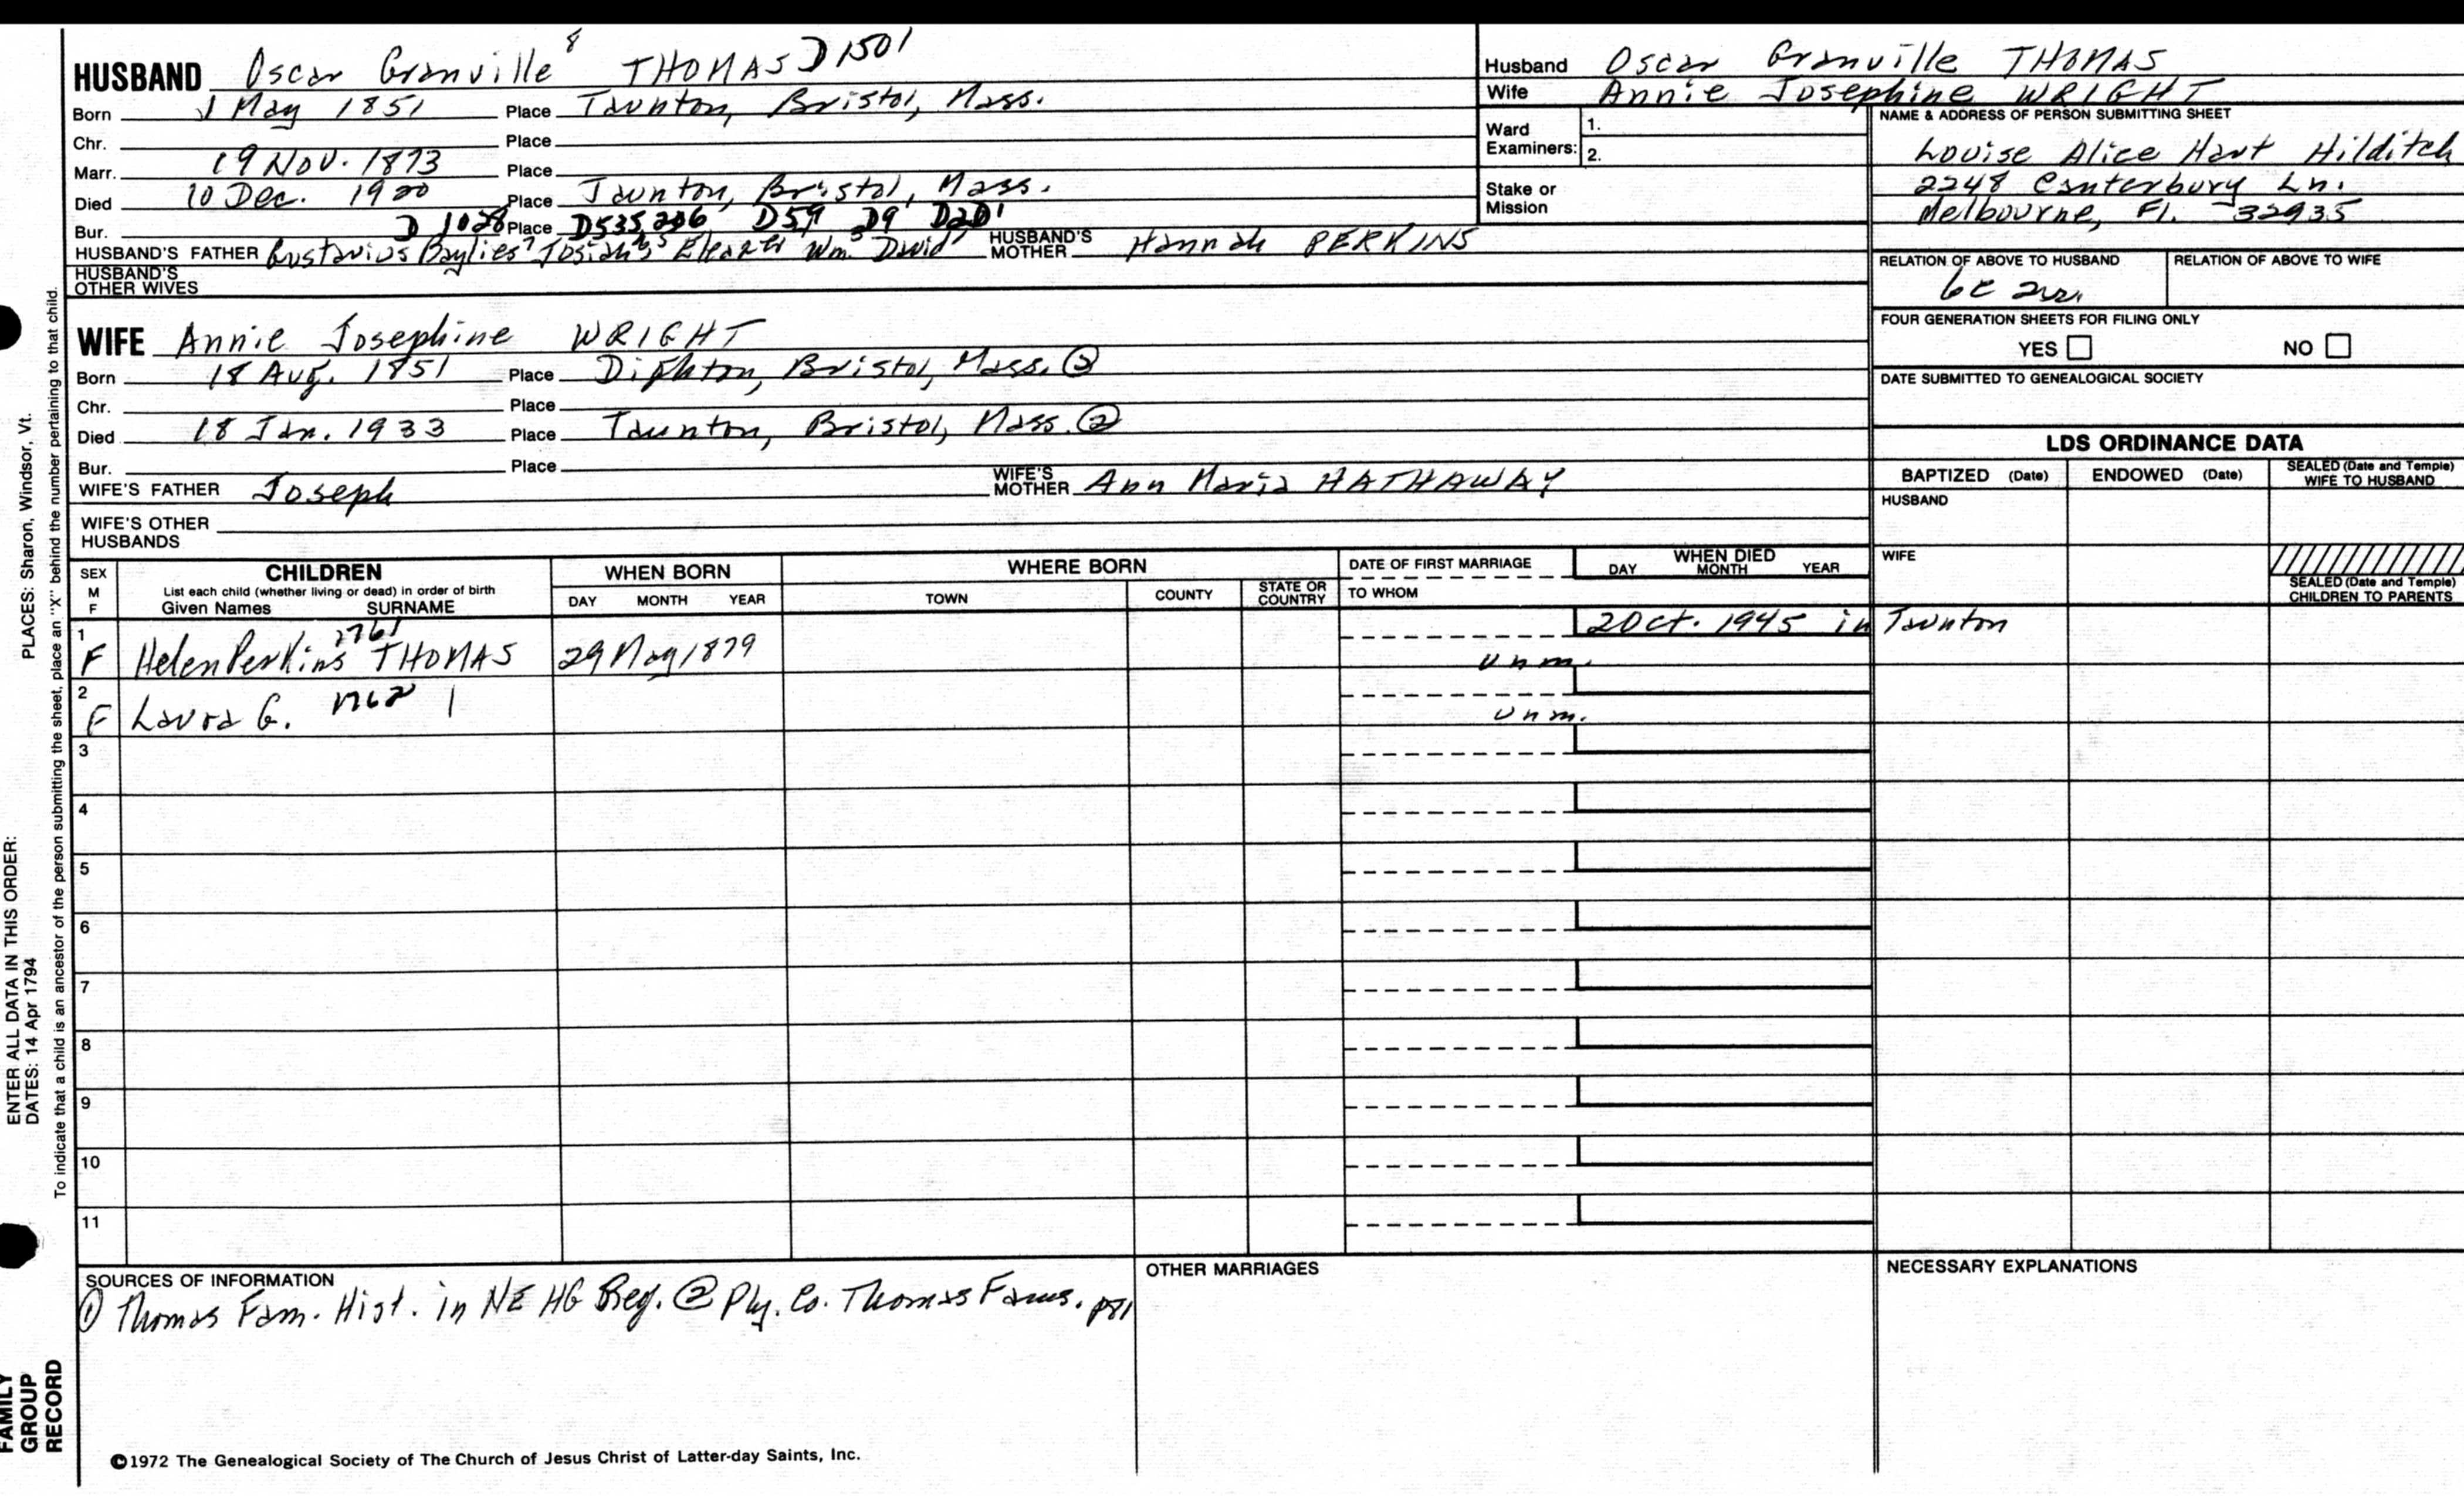 HUSBAND Oscar Granville 8 THOMAS D1501
Born 1 May 1851 Place Taunton, Bristol, Mass.
Chr. Place
Marr. 19 Nov. 1873 Place
Died 10 Dec. 1920 Place Taunton, Bristol, Mass.
Bur. D 1028 Place D535, D59 D9 D201
HUSBAND'S FATHER Gustavius Baylies 7 Josiah 6 5 Eleazer Wm. 3 David 1 HUSBAND'S MOTHER Hannah PERKINS
HUSBAND'S OTHER WIVES
Husband Oscar Granville THOMAS
Wife Annie Josephine WRIGHT
Ward Examiners: 1.
2.
Stake or Mission
NAME & ADDRESS OF PERSON SUBMITTING SHEET
Louise Alice Hart Hilditch
2248 Canterbury Ln.
Melbourne, Fl. 32935
RELATION OF ABOVE TO HUSBAND RELATION OF ABOVE TO WIFE
6c
FOUR GENERATION SHEETS FOR FILING ONLY
YES NO
DATE SUBMITTED TO GENEALOGICAL SOCIETY
WIFE Annie Josephine WRIGHT
Born 18 Aug. 1851 Place Dighton, Bristol, Mass. ②
Chr. Place
Died 18 Jan. 1933 Place Taunton, Bristol, Mass. ②
Bur. Place
WIFE'S FATHER Joseph WIFE'S MOTHER Ann Maria HATHAWAY
WIFE'S OTHER HUSBANDS
LDS ORDINANCE DATA
BAPTIZED (Date) ENDOWED (Date) SEALED (Date and Temple) WIFE TO HUSBAND
HUSBAND
WIFE
SEALED (Date and Temple) CHILDREN TO PARENTS
SEX M F CHILDREN
List each child (whether living or dead) in order of birth
Given Names SURNAME
WHEN BORN
DAY MONTH YEAR
WHERE BORN
TOWN COUNTY STATE OR COUNTRY
DATE OF FIRST MARRIAGE
TO WHOM
WHEN DIED
DAY MONTH YEAR
1 F Helen Perkins 1761 THOMAS 29 May 1879 Unm. 2 Oct. 1945 in Taunton
2 F Laura G. 1762 Unm.
3
4
5
6
7
8
9
10
11
SOURCES OF INFORMATION
① Thomas Fam. Hist. in NE HG Reg. ② Ply. Co. Thomas Fams. p81
OTHER MARRIAGES
NECESSARY EXPLANATIONS
©1972 The Genealogical Society of The Church of Jesus Christ of Latter-day Saints, Inc.
FAMILY GROUP RECORD
ENTER ALL DATA IN THIS ORDER:
DATES: 14 Apr 1794
PLACES: Sharon, Windsor, Vt.
To indicate that a child is an ancestor of the person submitting the sheet, place an "X" behind the number pertaining to that child.